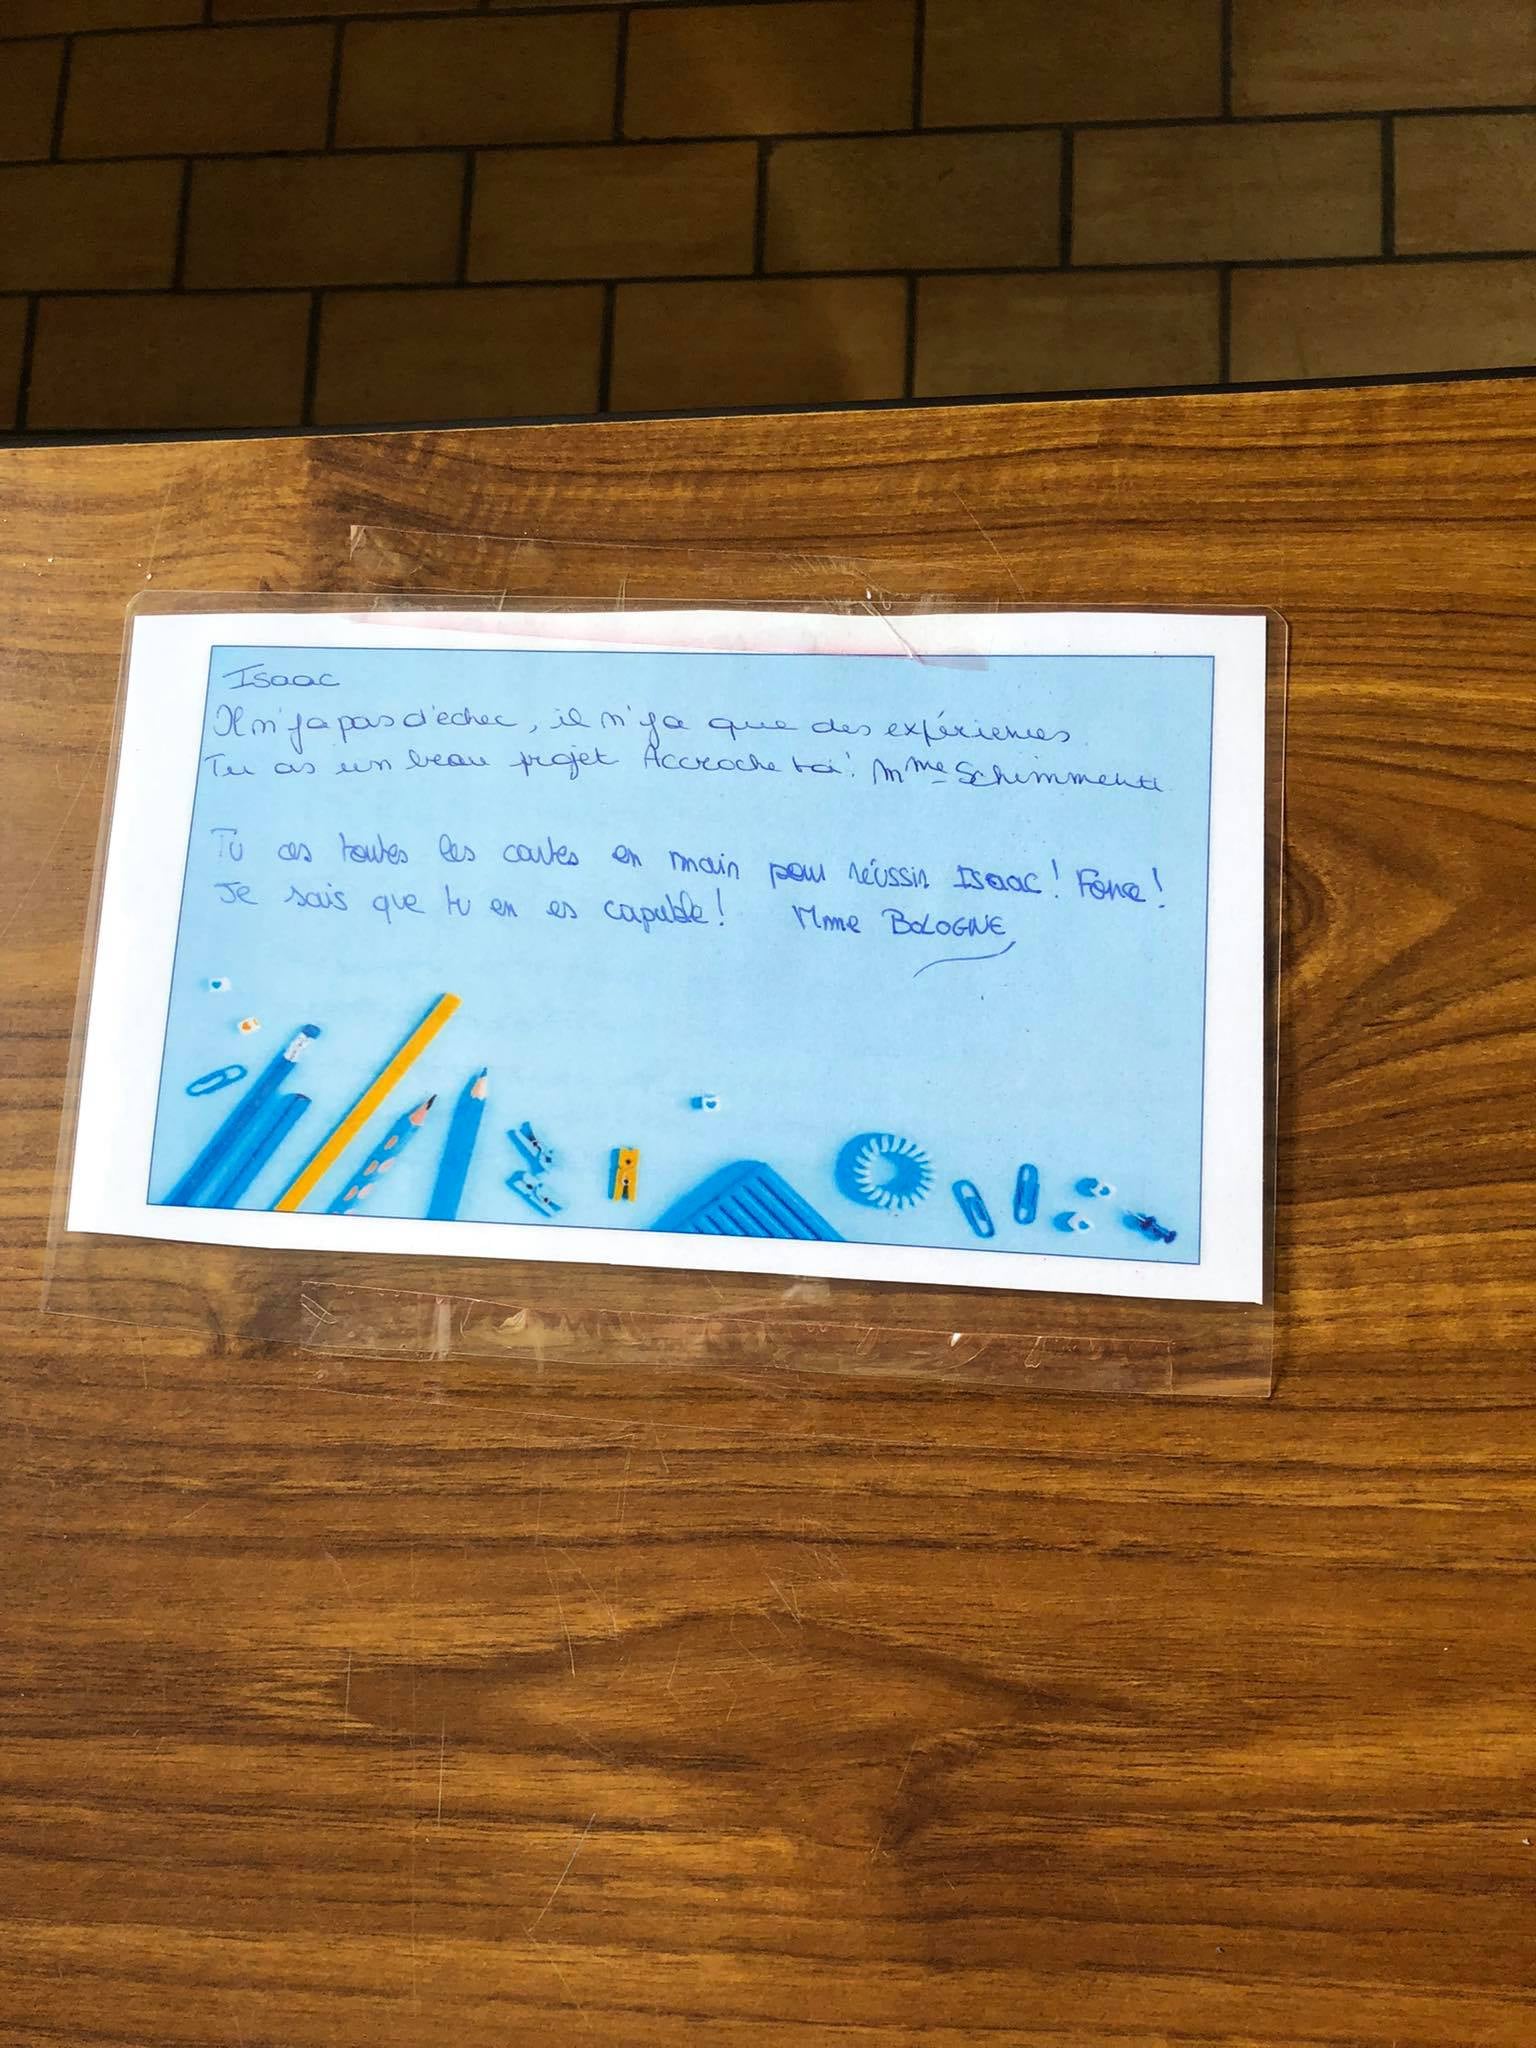 Isaac
Il n'y a pas d'échec, il n'y a que des expériences
Tu as un beau projet Accroche toi! Mme Schimmenti
Tu as toutes les cartes en main pour réussir Isaac! Fonce!
Je sais que tu en es capable! Mme BOLOGNE